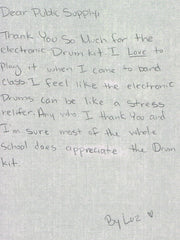 Dear Public Supply,
Thank You So Much for the
electronic Drum kit. I Love to
Play it when I come to band
class. I feel like the electronic
Drums can be like a stress
relifer. Any who, I thank You and
I'm sure most of the whole
school does appreciate the Drum
kit.
By Luz ♥